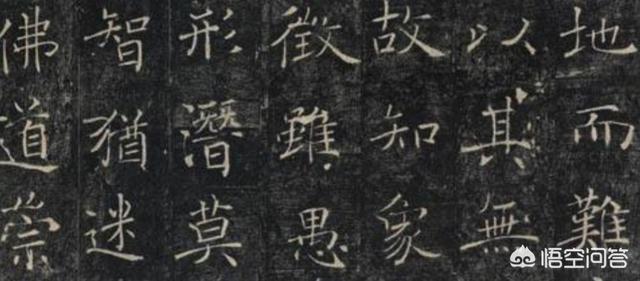 地而難
以其無
故知象
徵雖愚
形潛莫
智猶迷
佛道崇
悟空问答